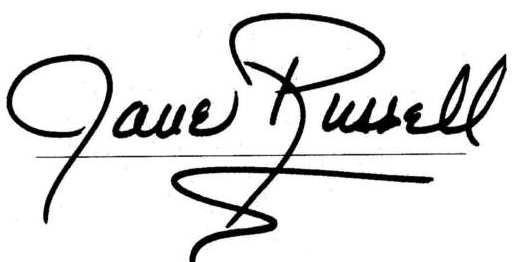 Jane Russell